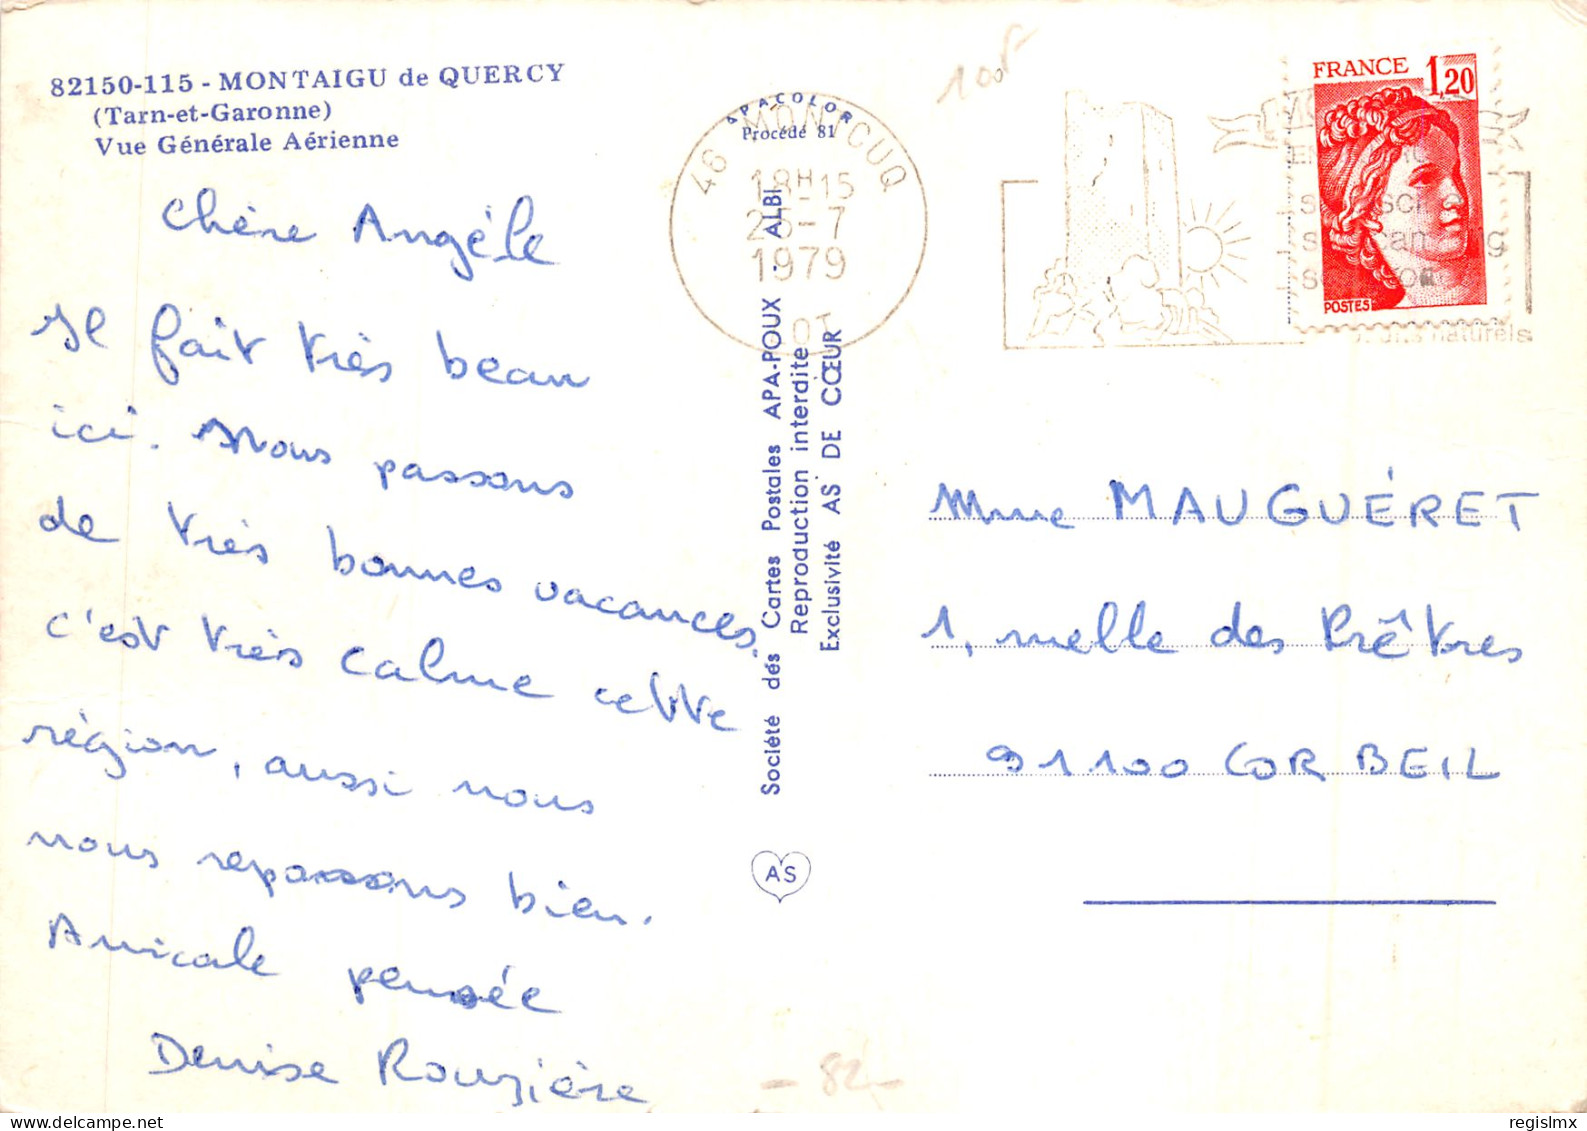 82150-115 - MONTAIGU de QUERCY
(Tarn-et-Garonne)
Vue Générale Aérienne
Chère Angèle
Il fait très beau
ici. Nous passons
de très bonnes vacances.
c'est très calme cette
région, aussi nous
nous reposons bien.
Amicale pensée
Denise Rouzière
APACOLOR
Procédé 81
Société des Cartes Postales APA-POUX - ALBI
Reproduction interdite
Exclusivité AS DE CŒUR
AS
46 MONTCUQ
18H15
25-7
1979
LOT
100F
FRANCE 1,20
POSTES
naturels
Mme MAUGUÉRET
1, ruelle des Prêtres
91100 CORBEIL
- 82 -
regislmx